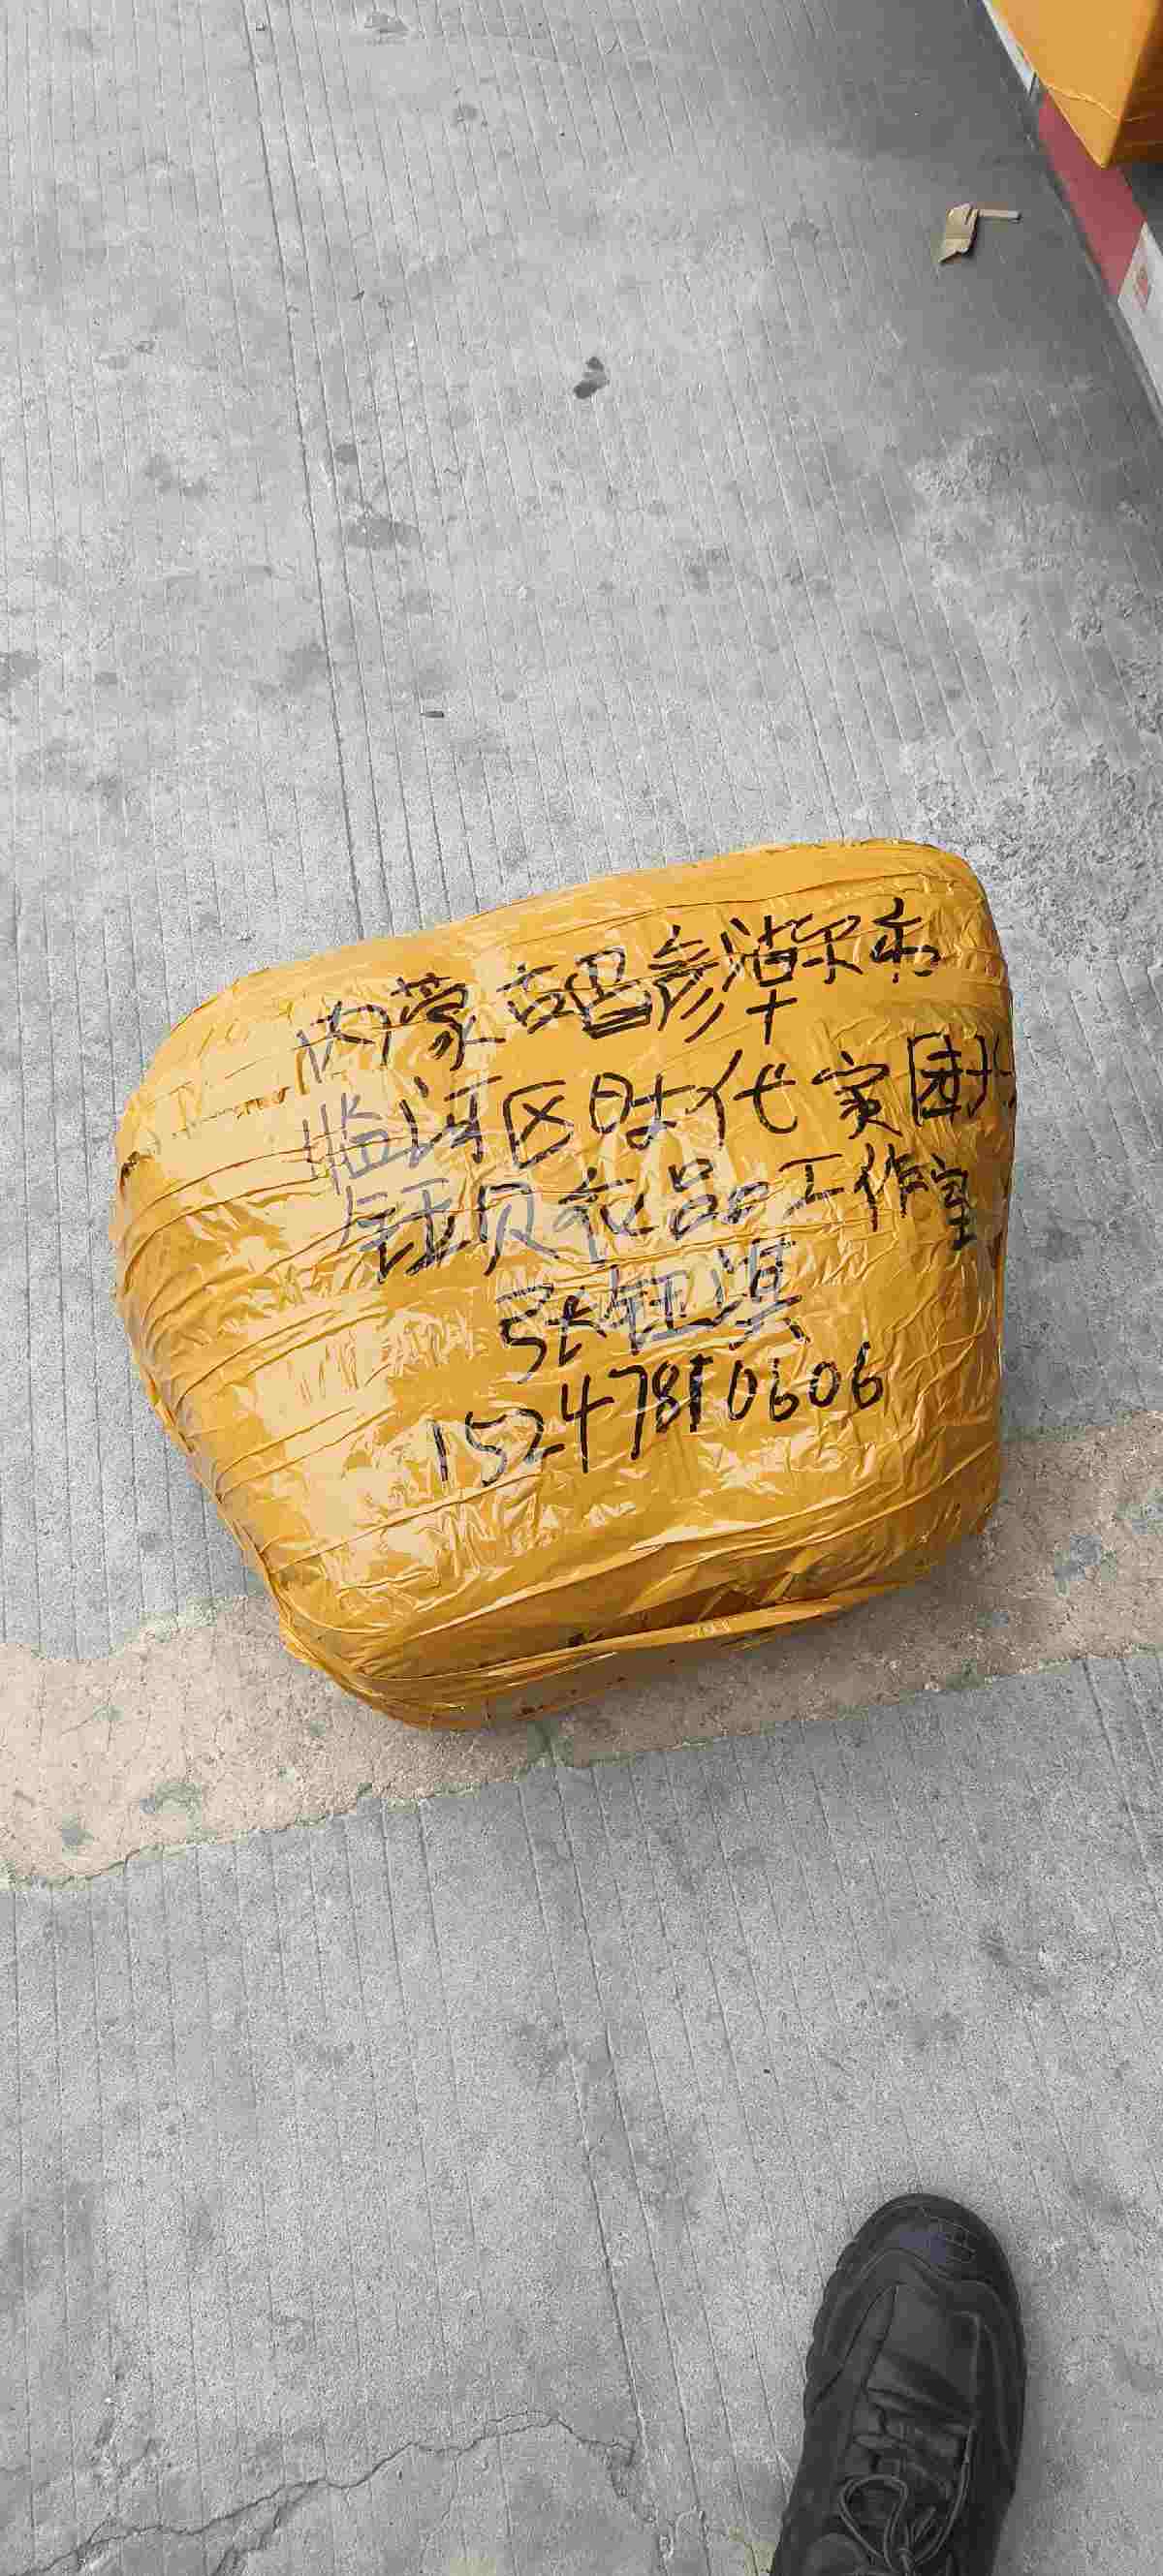 内蒙古巴彦淖尔市
临河区时代家园北
钰贝衣品工作室
张钰淇
15247810606